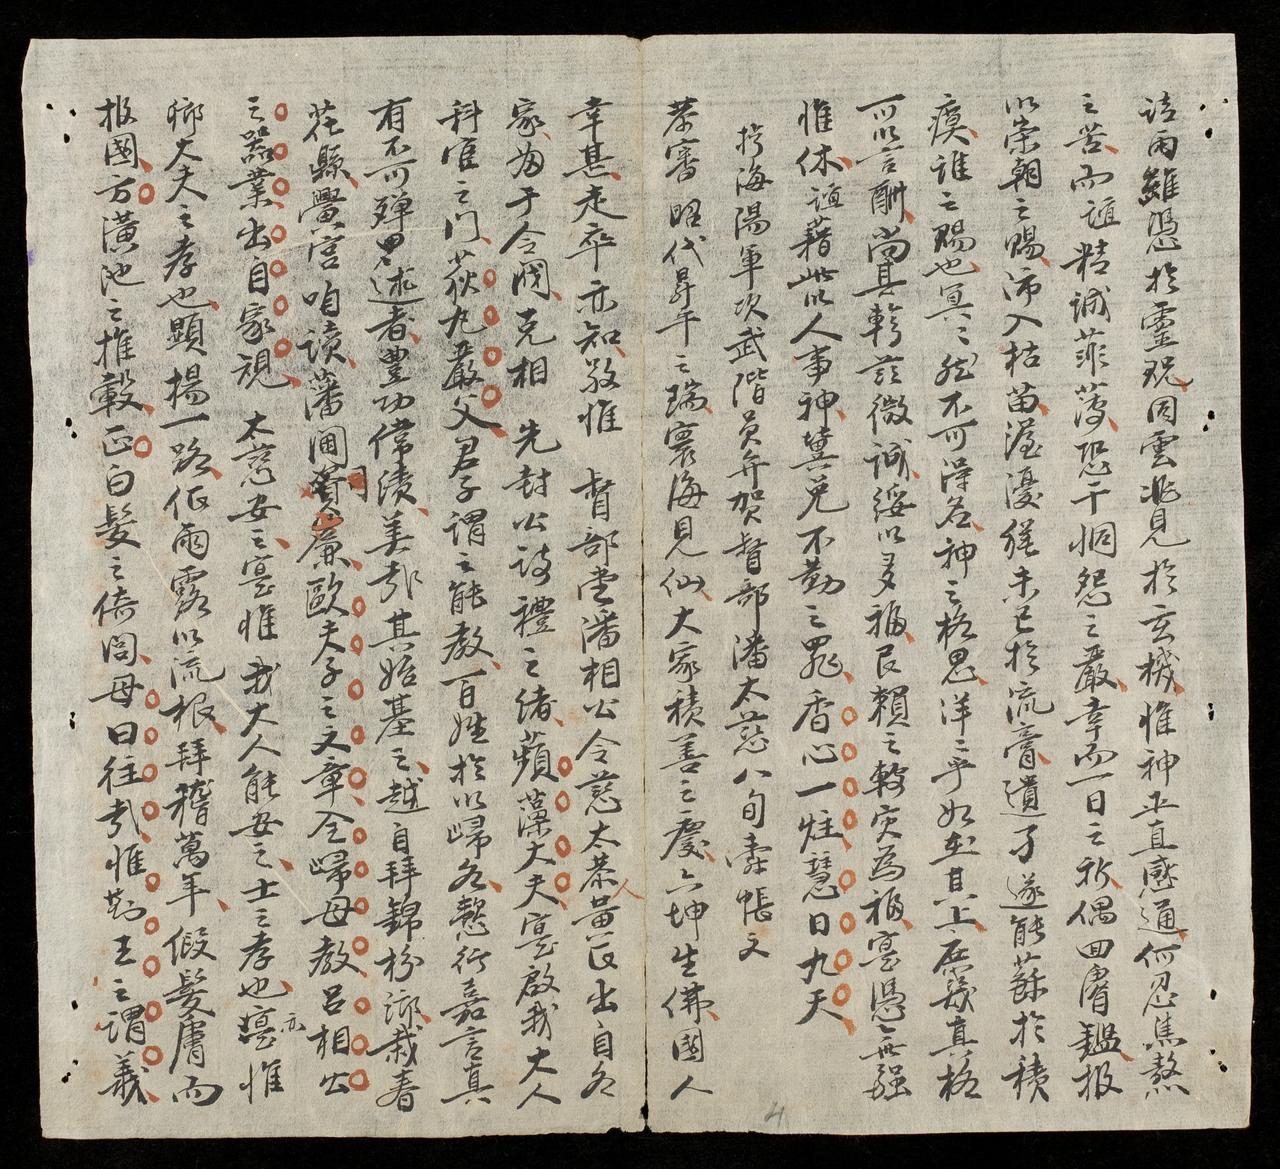 話雨雖憑於靈貺因雲兆見於玄機惟神正直感通何忍焦熬
之苦而誼精誠菲薄恐干恫怨之嚴幸而一日之祈偶回睿鑑报
以崇朝之賜沛入枯苗渥優繼未已於流膏遺孑遂能蘇於積
瘼誰之賜也冥之然不可淂名神之格思洋之乎如在其上辰幾真格
可以言酬尚其斡玆微誠綏以多福艮賴之轉灾為福寔憑無疆
惟休誼藉此以人事神冀免不勤之罪香心一炷慧日九天
擬海陽軍次武階員弁賀督部潘太慈八旬壽帳文
恭審昭代昇平之瑞寰海見仙大家積善之慶六坤生佛國人
幸甚走卒亦知敬惟 督部堂潘相公令慈太恭人黃艮出自名
家为于令閥克相 先封公詩禮之緒蘋藻大夫寔啟我大人
科宦之门荻丸嚴父君子謂之能教百姓於以歸名懿行嘉言真
有不可殫畢述者豊功偉績美哉其始基之越自拜錦枌鄉栽春
花縣黌宮咱讀藩閫同廉歐夫子之文章全歸母教吕相公
之器業出自家視 太慈安之寔惟 我大人能安之士之孝也寔亦惟
鄉大夫之孝也顯揚一路佂雨露以流根拜稽萬年假髮膚而
报國方潢池之推轂正白髮之倚閭母曰往哉惟勤王之謂義